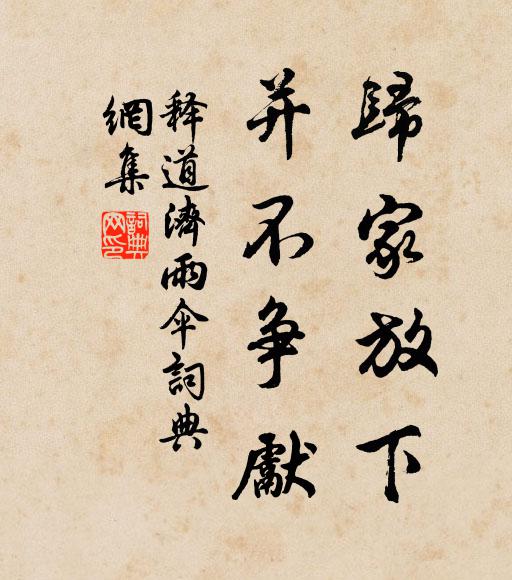 歸家放下
并不争獻
釋道濟雨伞詞典
網集
詞典
网印